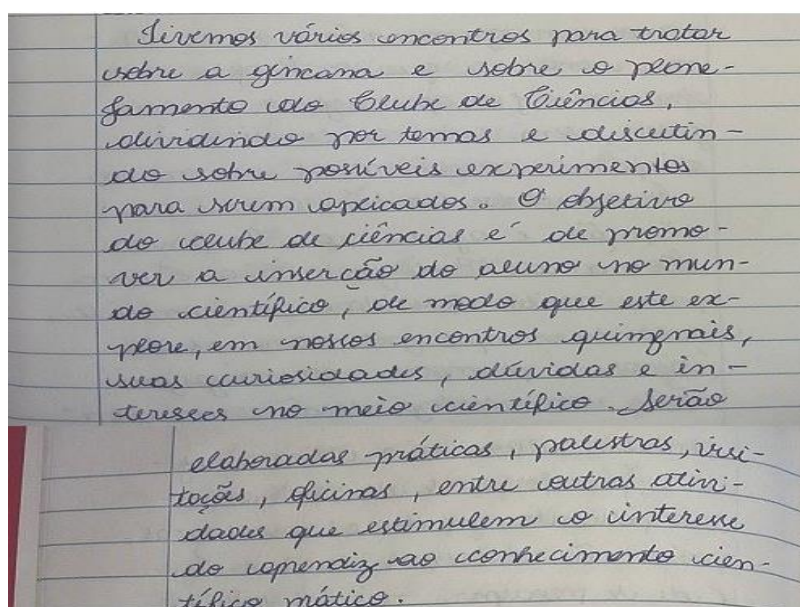 Tivemos vários encontros para tratar
sobre a gincana e sobre o plane-
jamento do Clube de Ciências,
dividindo por temas e discutin-
do sobre possíveis experimentos
para serem aplicados. O objetivo
do clube de ciências é de promo-
ver a inserção do aluno no mun-
do científico, de modo que este ex-
plore, em nossos encontros quinzenais,
suas curiosidades, dúvidas e in-
teresses no meio científico. Serão
elaboradas práticas, palestras, visi-
tações, oficinas, entre outras ativi-
dades que estimulem o interesse
do aprendiz ao conhecimento cien-
tífico mático.